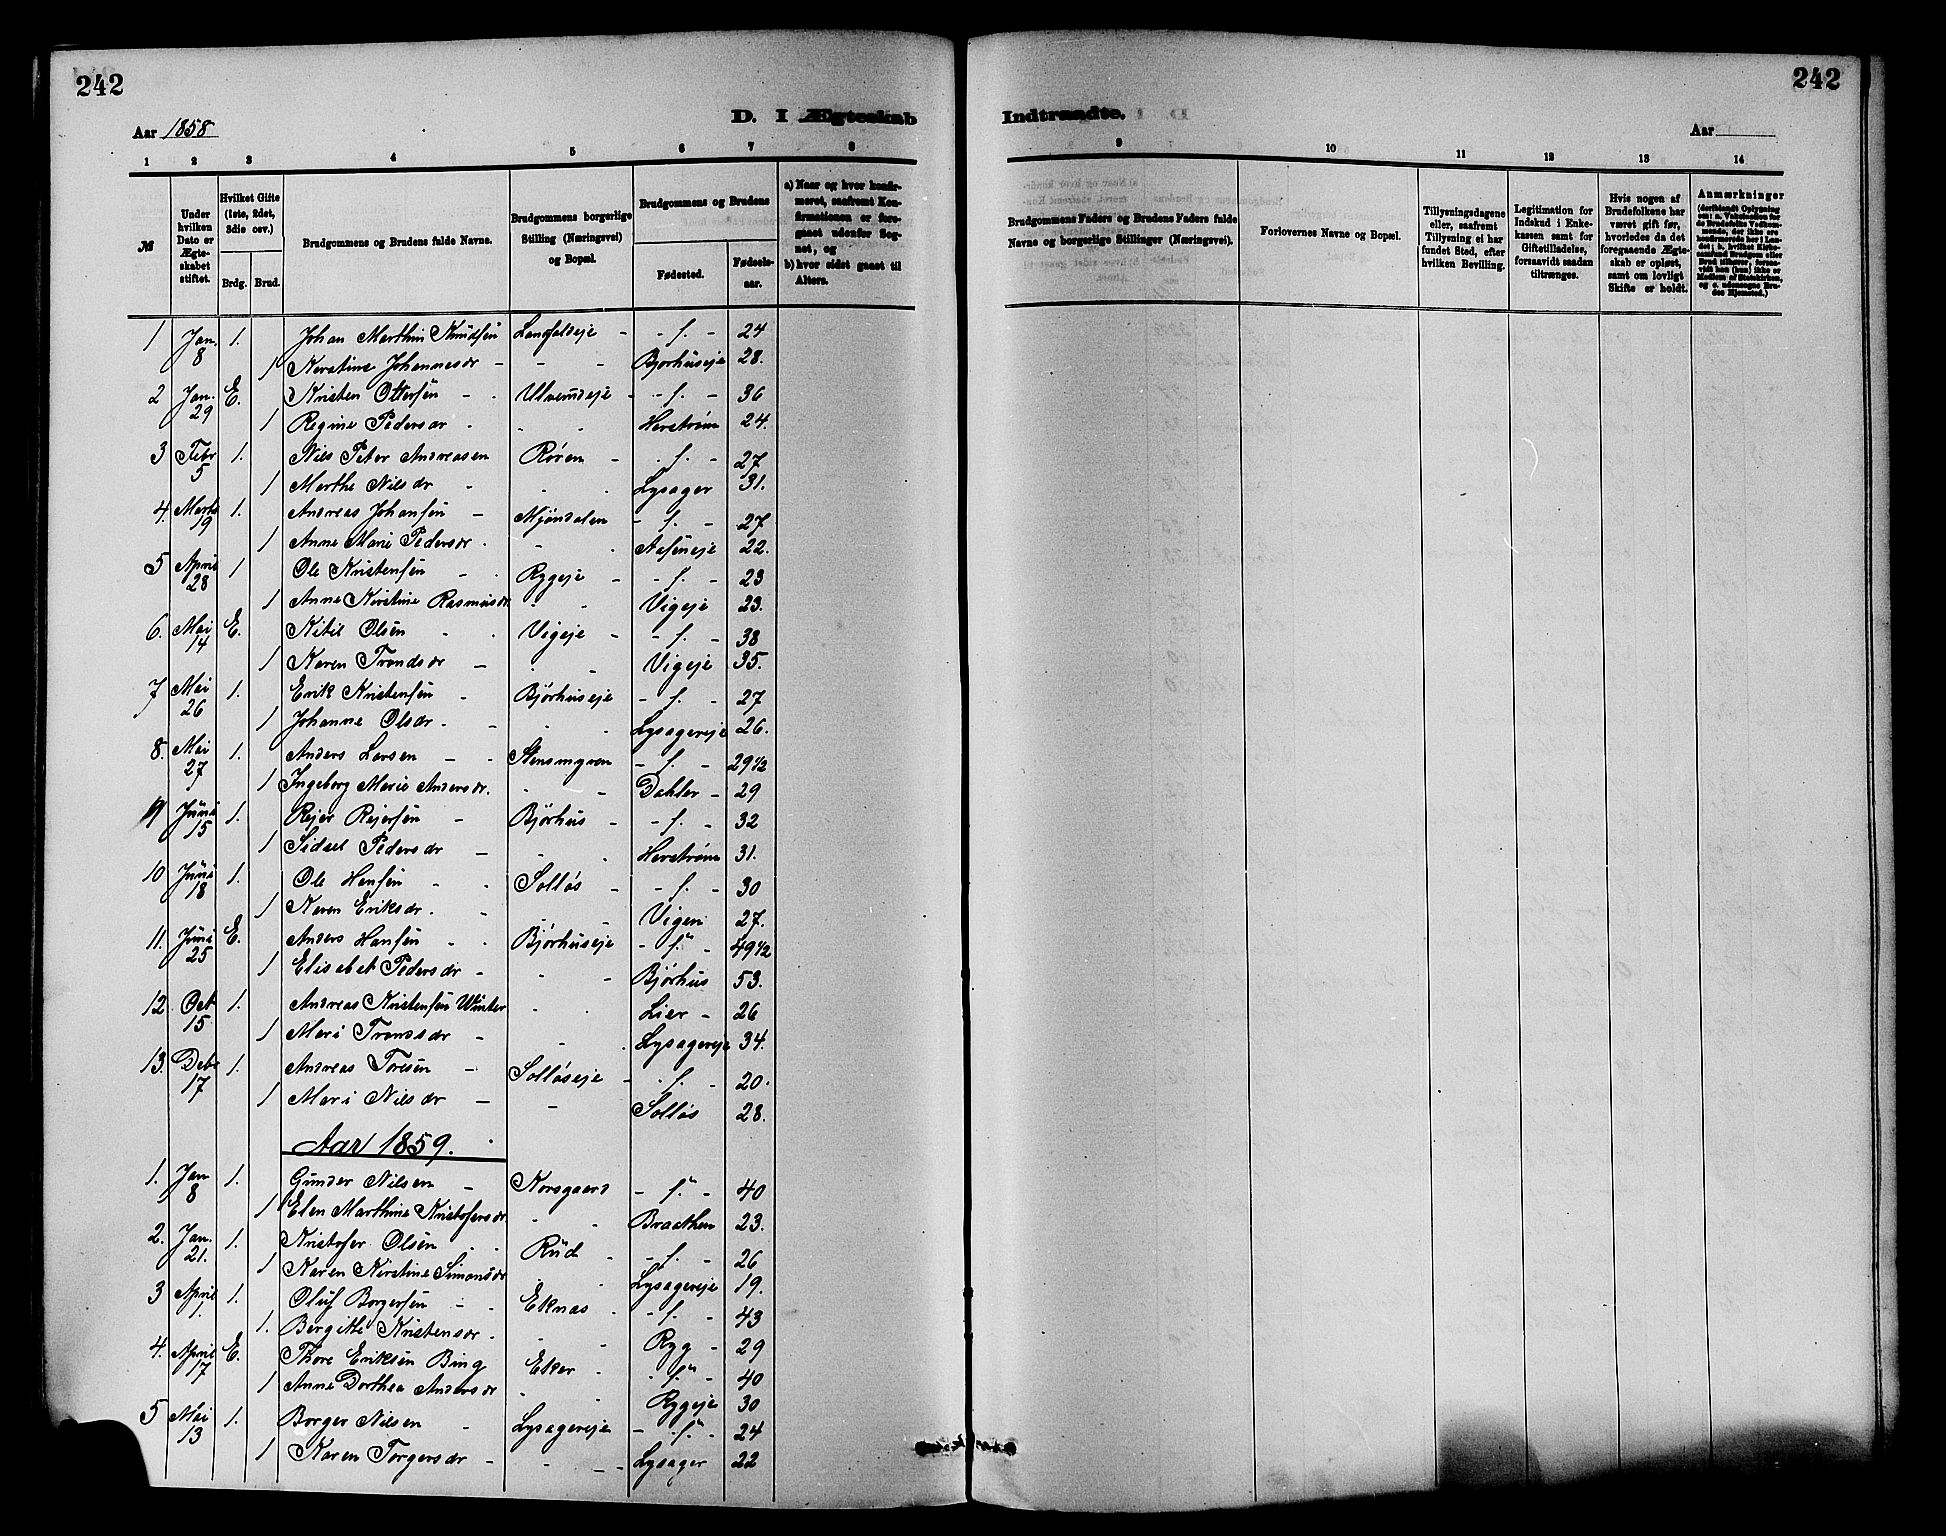 242
242
D. I Ægteskab Indtraadte.
Aar 1858
Aar
1 2 3 4 5 6 7 8 9 10 11 12 13 14
№
Under hvilken Dato er Ægteskabet stiftet.
Hvilket Gifte (1ste, 2det, 3die osv.)
Brdg. Brud.
Brudgommens og Brudens fulde Navne.
Brudgommens borgerlige Stilling (Næringsvei) og Bopæl.
Brudgommens og Brudens
Fødested.
Fødselsaar.
a) Naar og hvor konfirmeret, saafremt Konfirmationen er foregaaet udenfor Sognet, og
b) hvor sidst gaaet til Alters.
Brudgommens Faders og Brudens Faders fulde Navne og borgerlige Stillinger (Næringsvei).
Forlovernes Navne og Bopæl.
Tillysningsdagene eller, saafremt Tillysning ei har fundet Sted, efter hvilken Bevilling.
Legitimation for Indskud i Enkekassen samt for Giftetilladelse, forsaavidt saadan tiltrænges.
Hvis nogen af Brudefolkene har været gift før, hvorledes da det foregaaende Ægteskab er opløst, samt om lovligt Skifte er holdt.
Anmærkninger
1 Jan. 8 1. Johan Marthin Knudsen Landfaldeje - f. - 24
1 Kerstine Johannesdr - - - Bjørhuseje 28.
2 Jan. 29 E. Kristen Ottersen - - Ulvenseje - - f. - 36
1 Regine Pedersdr - Herstrøm 24.
3 Febr 5 1. Nils Peter Andreasen Røren - - f. - 27
1 Marthe Nilsdr - Lysager 31.
4. Marts 19 1. Andreas Johansen - Mjøndalen - f. - 27
1 Anne Marie Pedersdr. Aaseneje 22.
5 April 28 1 Ole Kristensen - Ryggeje - - f. - 23
1 Anne Kirstine Rasmusdr Vigeje 23.
6. Mai 14 E. Kitil Olsen - - Vigeje - - f. - 38
1 Karen Trondsdr - Vigeje 35.
7 Mai 26 1. Erik Kristensen - Bjørhuseje - f. - 27
1 Johanne Olsdr. - Lysagereje 26.
8. Mai 27 1. Anders Larsen - - Stensmyren - f. - 29½
1 Ingeborg Marie Andersdr. Dahler - 29
9 Juni 15 1. Rejer Rejersen - Bjørhus - - f. - 32
1 Sidsel Pedersdr - Herstrøm 31.
10 Juni 18 1. Ole Hansen - - Solløs - - f. - 30
1 Karen Eriksdr. - Vigen 27.
11. Juni 25 E. Anders Hansen - - Bjørhuseje - f. - 49½
1 Elisabet Pedersdr - Bjørhus 53.
12. Oct 15 1. Andreas Kristensen Winter - - Lier - 26
1 Mari Trondsdr - - Lysagereje 34.
13. Debr 17 1. Andreas Toresen - Solløseje - - f. - 20.
1 Mari Nilsdr - - Solløs 28.
Aar 1859.
1. Jan 8 1. Gunder Nilsen - Korsgaard - f. - 40
1 Elen Marthine Kristofersdr. Braathen 23.
2. Jan. 21. 1. Kristofer Olsen - - Rud - - f. - 26
1 Karen Kirstine Simonsdr Lysagereje 19.
3 April 1. 1. Oluf Borgersen - - Eknas - - f. - 43
1. Bergitte Kristensdr. - Ryg - 29
4. April 17 E. Thore Eriksen Bing Eker - f. - 40
1 Anne Dorthea Andersdr Ryggeje 30
5 Mai 13 1. Borger Nilsen - Lysagereje - f. - 24
1 Karen Torgersdr - - - Lysager 22